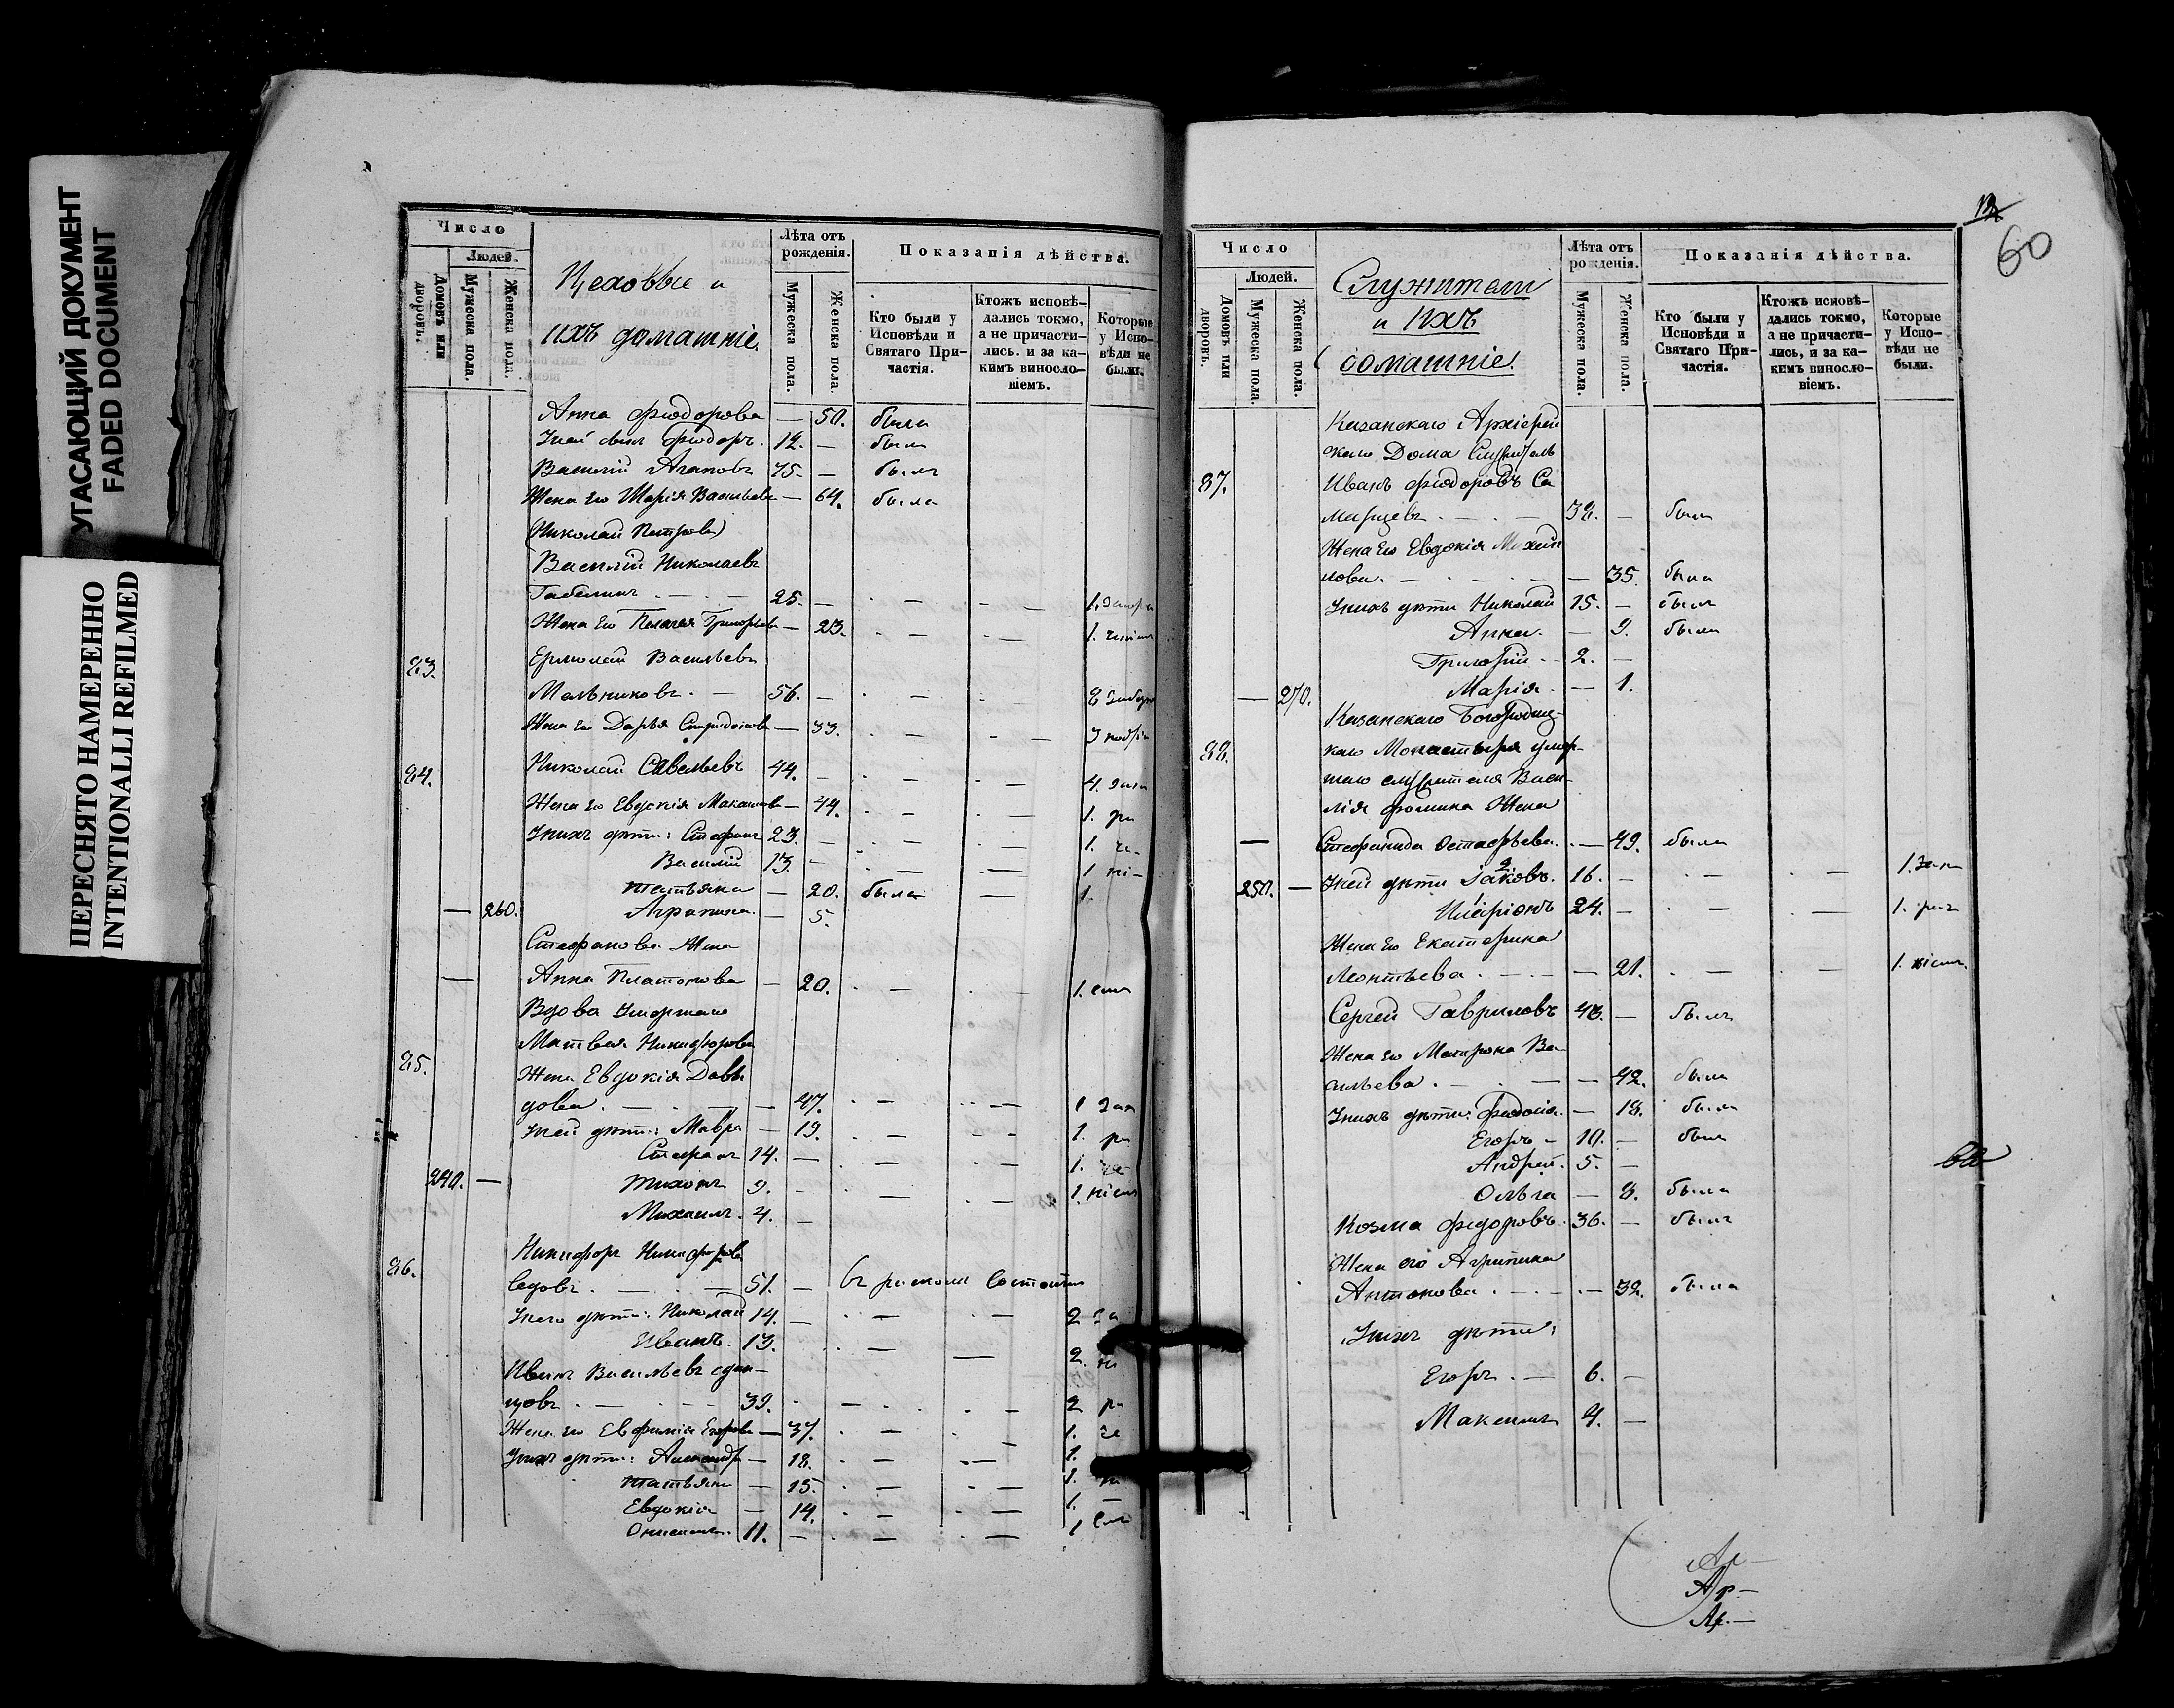 УГАСАЮЩИЙ ДОКУМЕНТ
FADED DOCUMENT
ПЕРЕСНЯТО НАМЕРЕННО
INTENTIONALLI REFILMED
Число
Людей.
Домовъ или дворовъ.
Мужеска пола.
Женска пола.
Цеховые и
ихъ домашніе.
Лѣта отъ рожденія.
Мужеска пола.
Женска пола.
Показанія дѣйства.
Кто были у Исповѣди и Святаго Причастія.
Ктожъ исповѣдались токмо, а не причастились. и за какимъ винословіемъ.
Которые у Исповѣди не были.
Анна Фіодорова — 50. была
Уней сынъ Фіодоръ. 12. — былъ
Василій Агаповъ 75. — былъ
Жена его Марія Васильева — 64. была
(Николай Петровъ)
Василій Николаевъ
25. — 1.
Жена его Пелагея Григорьева — 23. 1.
83. Ермолай Васильевъ
Мельниковъ. — 56. —
Жена его Дарья Спиридонова — 33. 3
84. Николай Савельевъ 44. — 4.
Жена его Евдокія — 44. 1.
Унихъ дѣти: Стефанъ 23. — 1.
Василій 13. — 1
Татьяна — 20. была — 1.
— 260. Агрипина. — 5.
Стефанова Жена
— Анна Платонова — 20. 1.
Вдова Умершаго
Матвея Никифорова
85. Жена Евдокія Давы
дова. — 47. 1
Уней дѣти: Мавра — 19. 1.
Стефанъ 14. — 1.
240. — Тихонъ 9. — 1.
Михаилъ. 4. —
86. Никифоръ Никифоровъ
51. — въ расколѣ состоитъ
Унего дѣти: Николай 14. — 2
Иванъ. 13. 2.
Иванъ Васильевъ
39. 2
Жена его Евфимія Егорова — 37. 1.
Унихъ дѣти: — 18. 1.
Татьяна — 15. 1.
Евдокія — 14. 1.
11. — 1
60
Число
Людей.
Домовъ или дворовъ.
Мужеска пола.
Женска пола.
Служители
и ихъ
домашніе.
Лѣта отъ рожденія.
Мужеска пола.
Женска пола.
Показанія дѣйства.
Кто были у Исповѣди и Святаго Причастія.
Ктожъ исповѣдались токмо, а не причастились, и за какимъ винословіемъ.
Которые у Исповѣди не были.
Казанскаго Архіерей
скаго Дома Служитель
87. Иванъ Фіодоровъ Са
марцевъ. — 38. — былъ
Жена его Евдокія Михай
лова. — 35. была
Унихъ дѣти Николай 15. — былъ
Анна. — 9. была
Григорій — 2. —
— 270. Марія. — 1.
Казанскаго Богородиц-
88. каго Монастыря умер-
шаго служителя Васи-
лія Фомина Жена
— Стефанида Остафьева. — 49. была
250. — Уней дѣти Іаковъ. 16. — 1.
Иларіонъ 24. — 1.
Жена его Екатерина
Леонтьева. — 21. 1.
Сергей Гавриловъ 43. — былъ
Жена его Матрона Ва-
сильева. — 42. была
Унихъ дѣти: Фіодосія. — 18. была
Егоръ — 10. — былъ
Андрей. 5. —
Ольга — 8. была
Козма Федоровъ. 36. — былъ
Жена его Агрипина
Антонова. — 32. была
Унихъ дѣти:
Егоръ. — 6. —
Максимъ 4. —